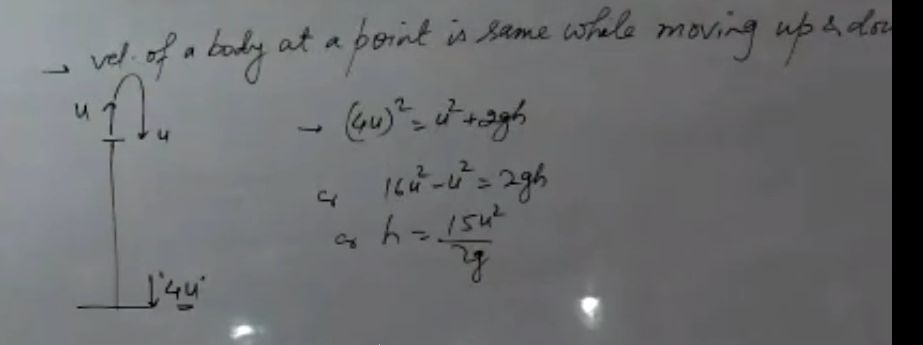 → vel. of a body at a point is same while moving up &
u
u
→ (4u)² = u² + 2gh
16u² - u² = 2gh
h = 15u²/2g
4u